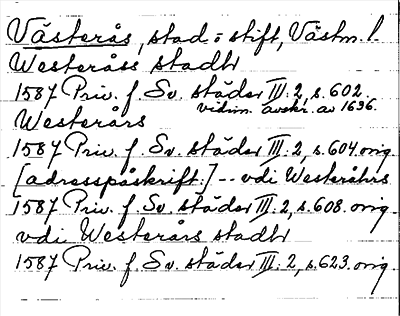 Västerås, stad = stift, Västm. l.
Westeråss stadhr
1587 Priv. f. Sv. städer III: 2, s. 602.
vidim. avskr. av 1636.
Westerårs
1587 Priv. f. Sv. städer III: 2, s. 604 orig.
[adresspåskrift:] -- vdi Westeråhrs
1587 Priv. f. Sv. städer III: 2, s. 608. orig.
vdi Westerårs stadhr
1587 Priv. f. Sv. städer III: 2, s. 623. orig.